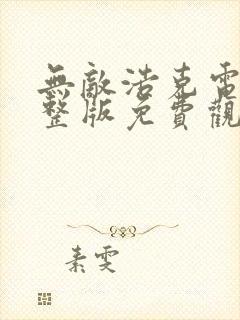 無敵浩克電
整版免費觀
素雯